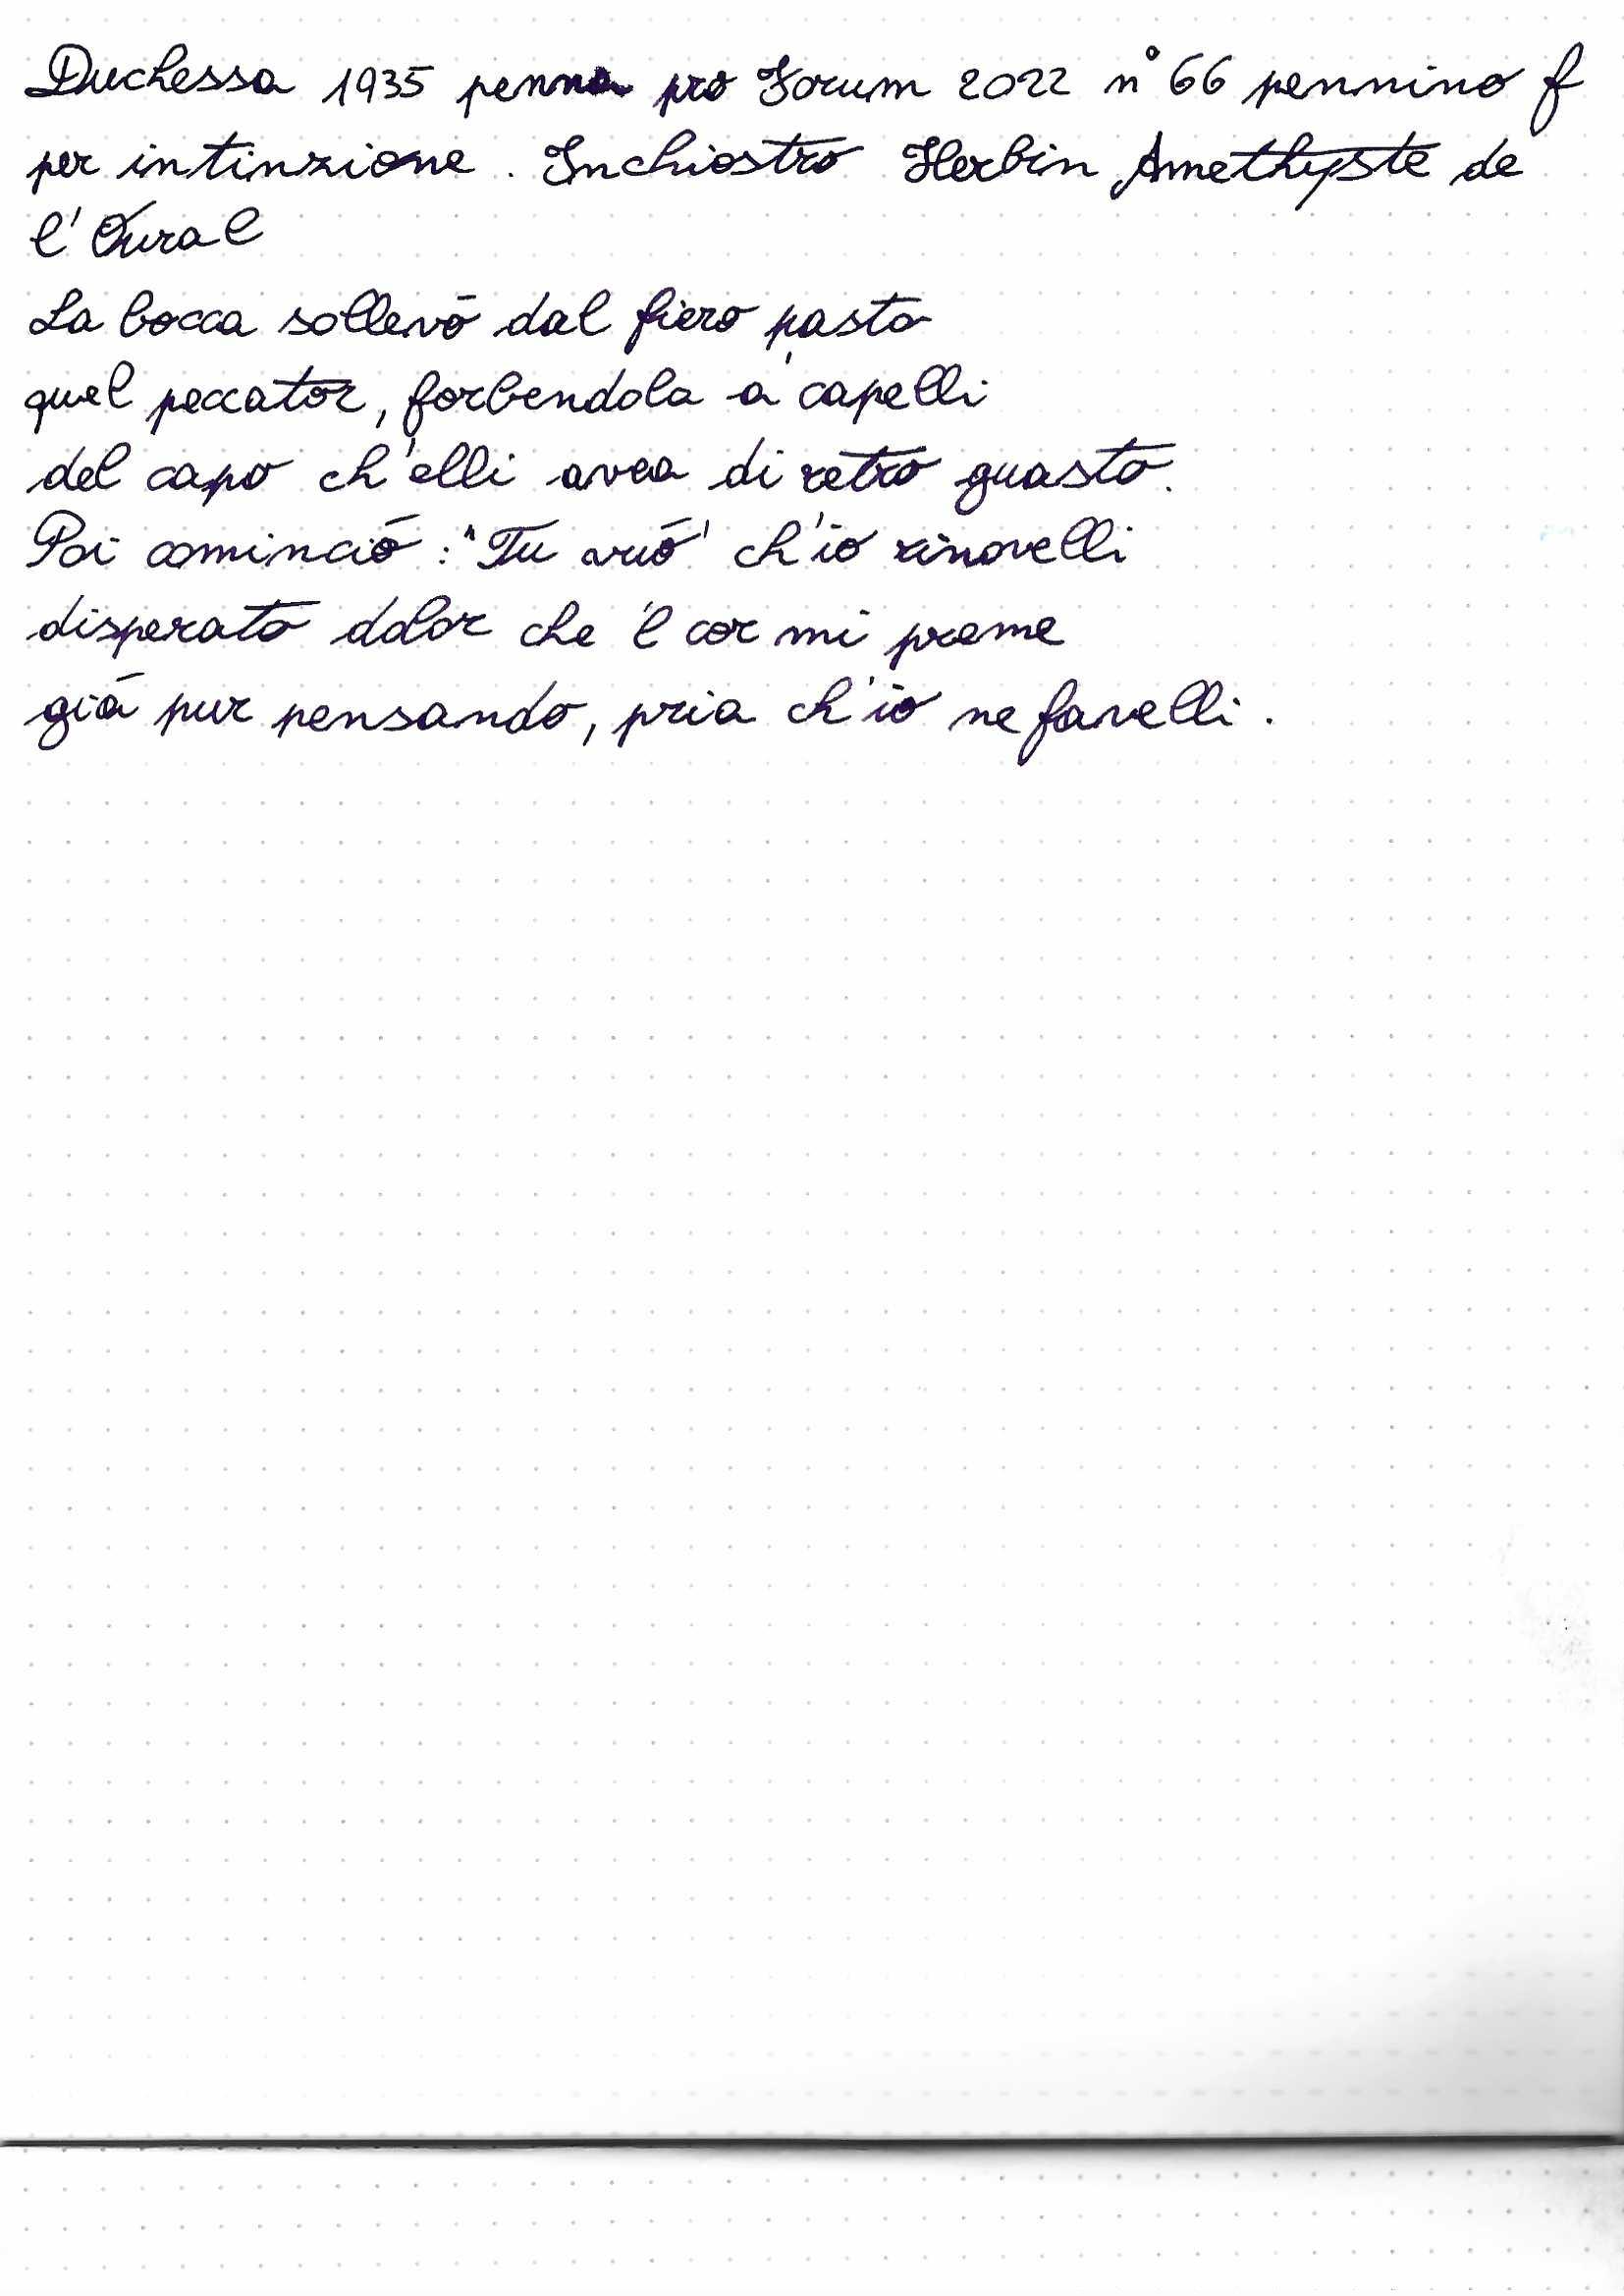 Duchessa 1935 penna pro Forum 2022 n° 66 pennino f
per intinzione. Inchiostro Herbin Amethyste de
l'Oural
La bocca sollevò dal fiero pasto
quel peccator, forbendola a' capelli
del capo ch'elli avea di retro guasto.
Poi cominciò: "Tu vuó' ch'io rinovelli
disperato dolor che 'l cor mi preme
già pur pensando, pria ch'io ne favelli.